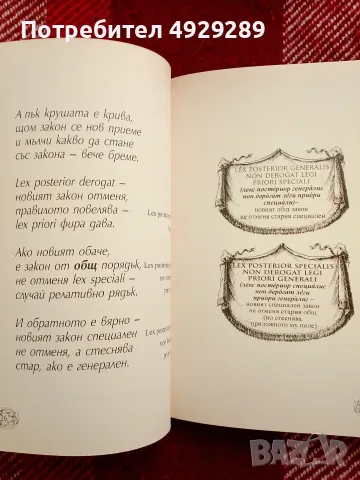 Потребител 4929289
А пък крушата е крива,
щом закон се нов приеме
и мълчи какво да стане
със закона – вече бреме.
Lex posterior derogat –
новият закон отменя,
правилото повелява –
lex priori фира дава.
Ако новият обаче,
е закон от общ порядък,
не отменя lex speciali –
случай релативно рядък.
И обратното е вярно –
новият закон специален
не отменя, а стеснява
стар, ако е генерален.
LEX POSTERIOR GENERALIS
NON DEROGAT LEGI
PRIORI SPECIALI
(лекс постѐриор генера̀лис
нон дѐрогат лѐги
прио̀ри специа̀ли)–
новият общ закон
не отменя стария специален
LEX POSTERIOR SPECIALIS
NON DEROGAT LEGI
PRIORI GENERALI
(лекс постѐриор специа̀лис
нон дѐрогат лѐги
прио̀ри генера̀ли) –
новият специален закон
не отменя стария общ
(но стеснява
приложното му поле)
BAZAR